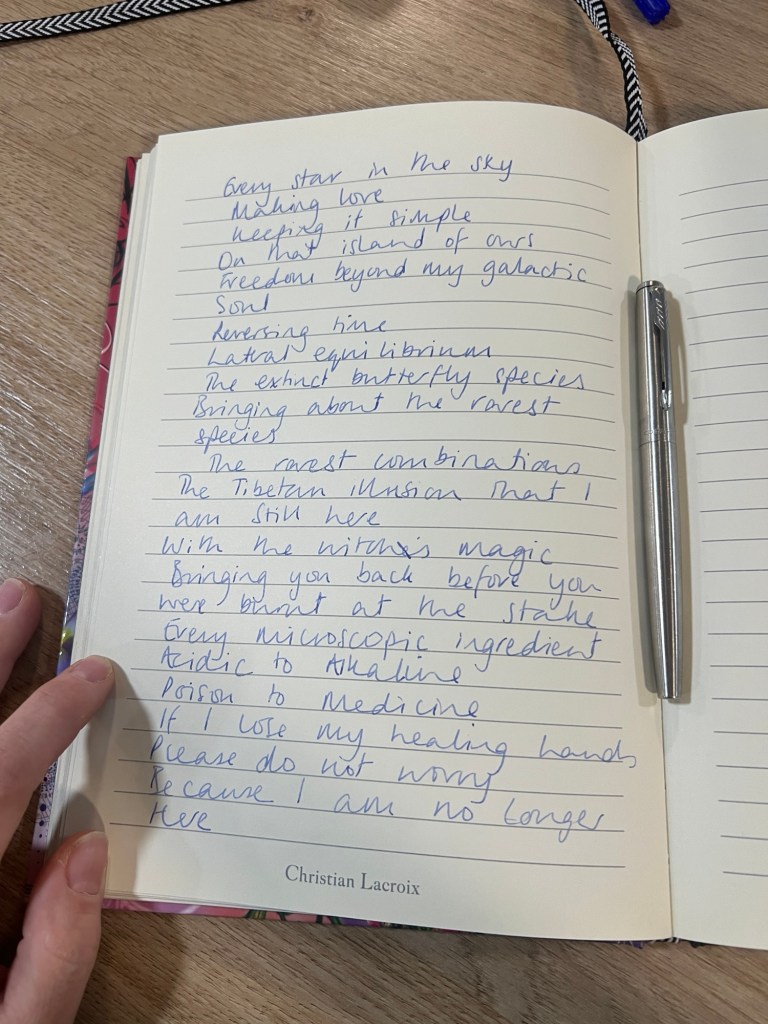 Every star in the sky
Making love
Keeping it simple
On that island of ours
Freedom beyond my galactic
Soul
Reversing time
Lateral equilibrium
The extinct butterfly species
Bringing about the rarest
species
The rarest combinations
The Tibetan illusion that I
am still here
With the witch's magic
Bringing you back before you
were burnt at the stake
Every microscopic ingredient
Acidic to Alkaline
Poison to Medicine
If I lose my healing hands
Please do not worry
Because I am no longer
Here
Christian Lacroix